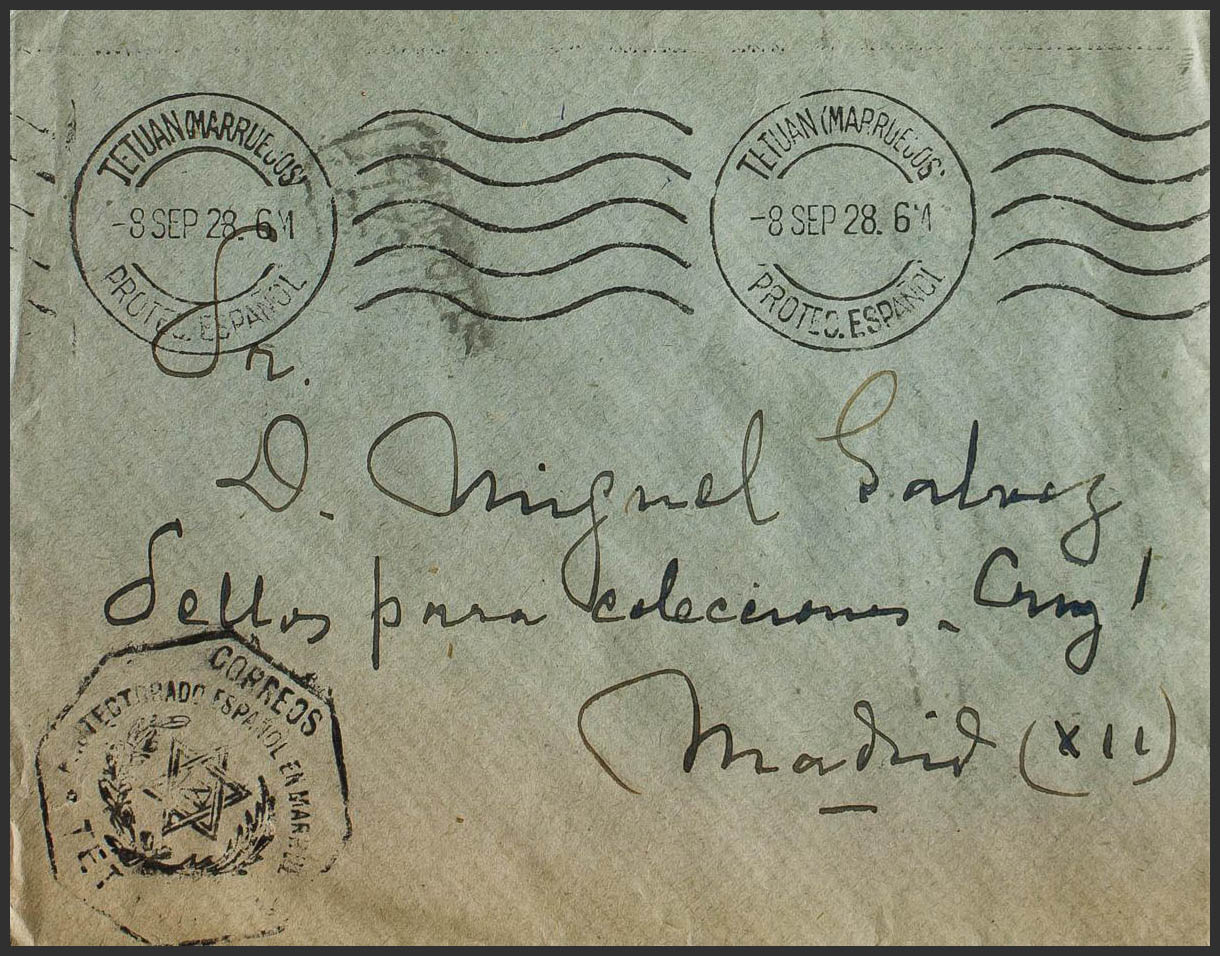 TETUAN (MARRUECOS)
-8 SEP 28. 6
PROTEC. ESPAÑOL
TETUAN (MARRUECOS)
-8 SEP 28. 6
PROTEC. ESPAÑOL
Sr.
D. Miguel Galvez
Sellos para colecciones. Cruz 1
Madrid (XII)
CORREOS
PROTECTORADO ESPAÑOL EN MARRUE
TET